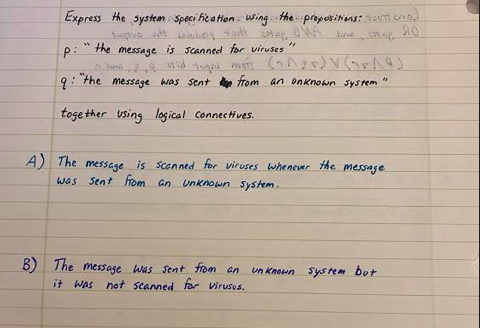 Express the system specification using the propositions:
p: "the message is scanned for viruses"
q: "the message was sent from an unknown system"
together using logical connectives.
A) The message is scanned for viruses whenever the message
was sent from an unknown system.
B) The message was sent from an unknown system but
it was not scanned for virusos.